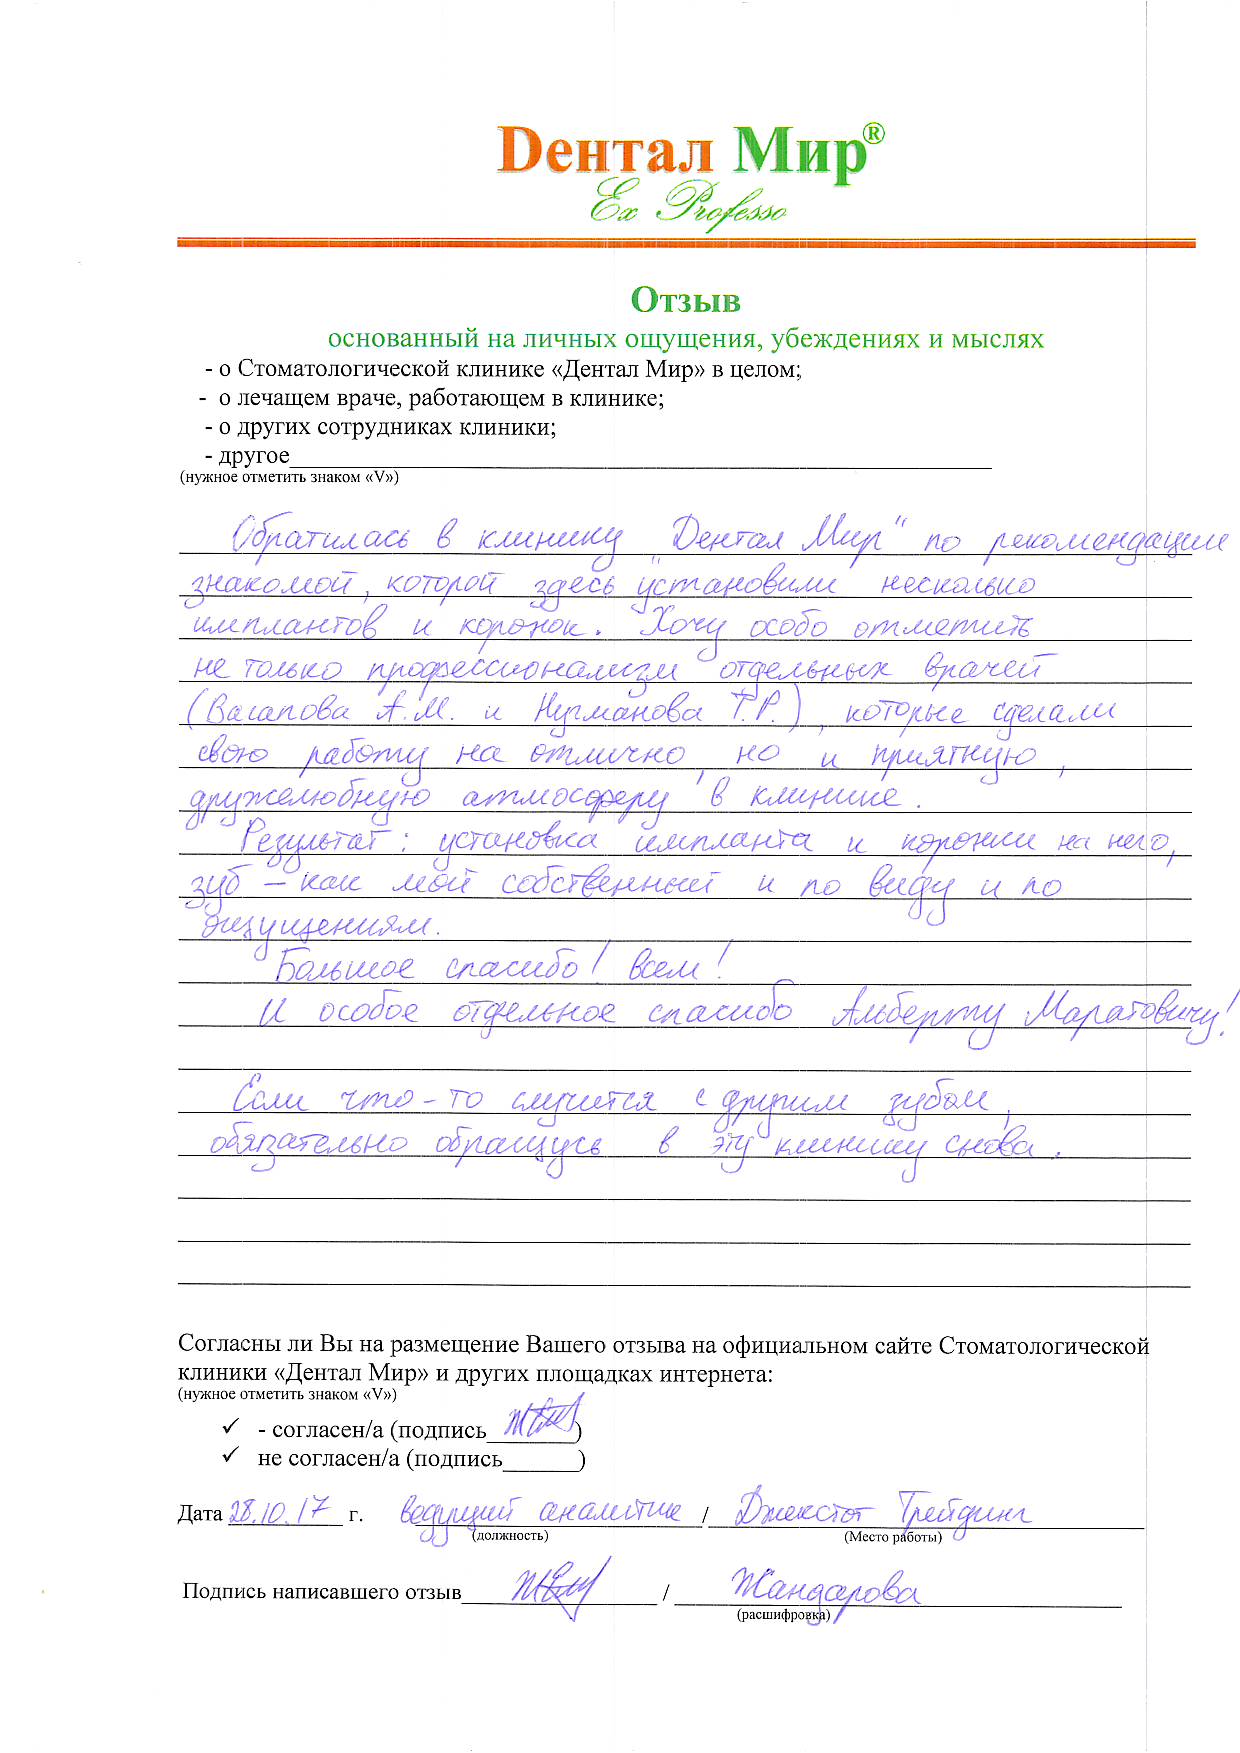 Dентал Мир®
Ex Professo
Отзыв
основанный на личных ощущения, убеждениях и мыслях
- о Стоматологической клинике «Дентал Мир» в целом;
- о лечащем враче, работающем в клинике;
- о других сотрудниках клиники;
- другое
(нужное отметить знаком «V»)
Обратилась в клинику „Дентал Мир" по рекомендации
знакомой, которой здесь установили несколько
имплантов и коронок. Хочу особо отметить
не только профессионализм отдельных врачей
(Вагапова А.М. и Нугманова Т.Р.), которые сделали
свою работу на отлично, но и приятную,
дружелюбную атмосферу в клинике.
Результат: установка импланта и коронки на него,
зуб – как мой собственный и по виду и по
ощущениям.
Большое спасибо! всем!
И особое отдельное спасибо Альберту Маратовичу!
Если что-то случится с другим зубом,
обязательно обращусь в эту клинику снова.
Согласны ли Вы на размещение Вашего отзыва на официальном сайте Стоматологической
клиники «Дентал Мир» и других площадках интернета:
(нужное отметить знаком «V»)
✓ - согласен/а (подпись_______)
✓ не согласен/а (подпись______)
Дата 28.10.17 г. ведущий аналитик / Джекстот Трейдинг
(должность) (Место работы)
Подпись написавшего отзыв / Жандарова
(расшифровка)